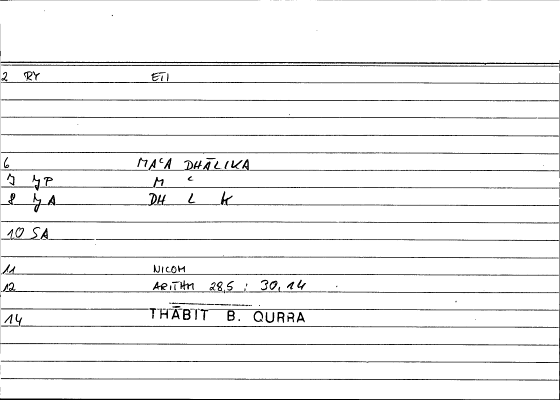 2 RY ETI
6 MAʿA DHĀLIKA
7 YP M ʿ
8 YA DH L K
10 SA
11 NICOM
12 ARITHM 28,5 : 30,14
14 THĀBIT B. QURRA